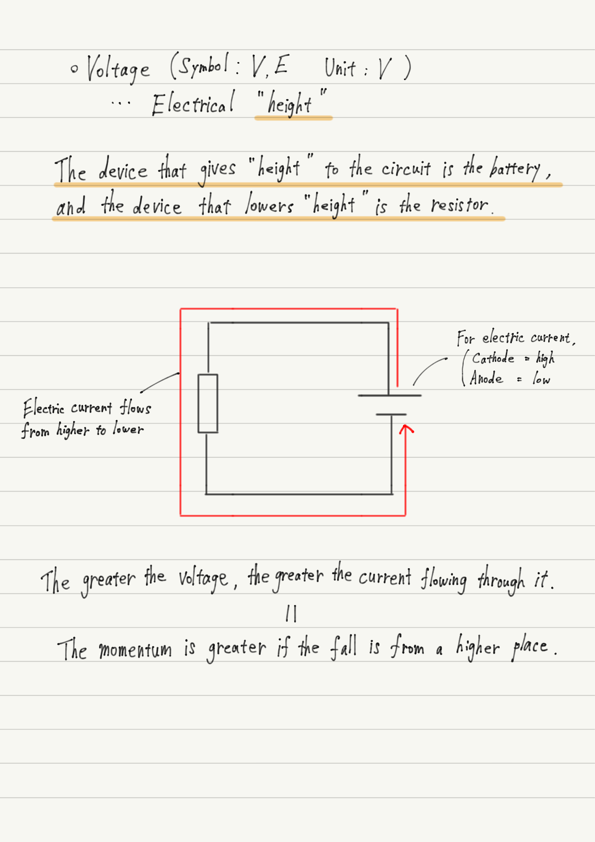 ○ Voltage (Symbol : V, E Unit : V )
... Electrical "height"
The device that gives "height" to the circuit is the battery,
and the device that lowers "height" is the resistor.
For electric current,
Cathode = high
Anode = low
Electric current flows
from higher to lower
The greater the voltage, the greater the current flowing through it.
||
The momentum is greater if the fall is from a higher place.